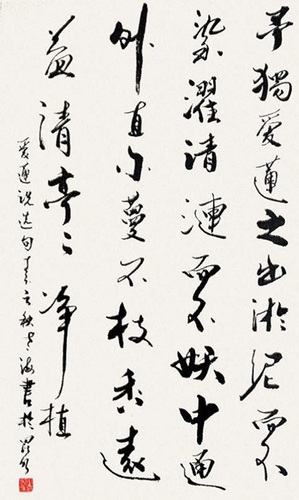 予獨愛蓮之出淤泥而不
染濯清漣而不妖中通
外直不蔓不枝香遠
益清亭々净植
爱蓮说选句 秋 海書於